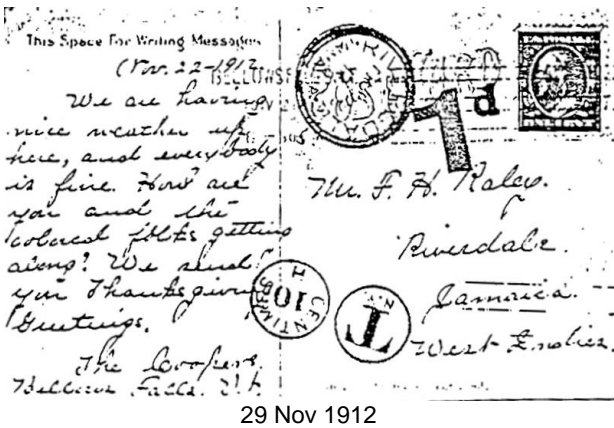 This Space For Writing Messages
Nov. 22-1912
We are having
nice weather up
here, and everybody
is fine. How are
you and the
colored folks getting
along? We send
you Thanksgiving
Greetings.
The Coopers.
Bellows Falls. Vt.
BELLOWS F
RIVERDALE
1d
Mr. F. H. Raley.
Riverdale.
Jamaica.
West Indies.
10
CENTIMES
N.Y.
T
29 Nov 1912